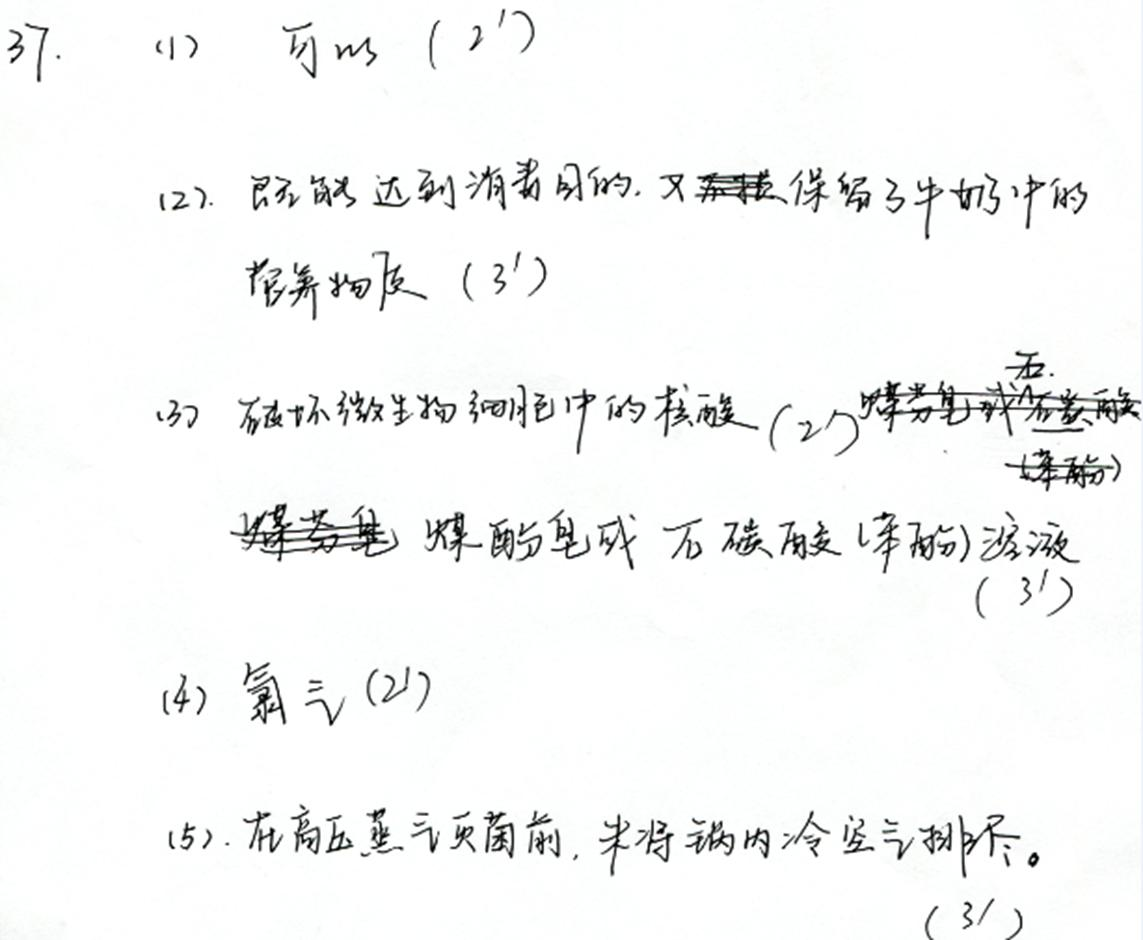 37. (1) 可以 (2')
(2). 既能达到消毒目的. 又保留了牛奶中的
营养物质 (3')
(3) 破坏微生物细胞中的核酸 (2')
煤酚皂或 石碳酸 (苯酚) 溶液
(3')
(4) 氯气 (2')
(5). 在高压蒸气灭菌前, 未将锅内冷空气排尽。
(3')